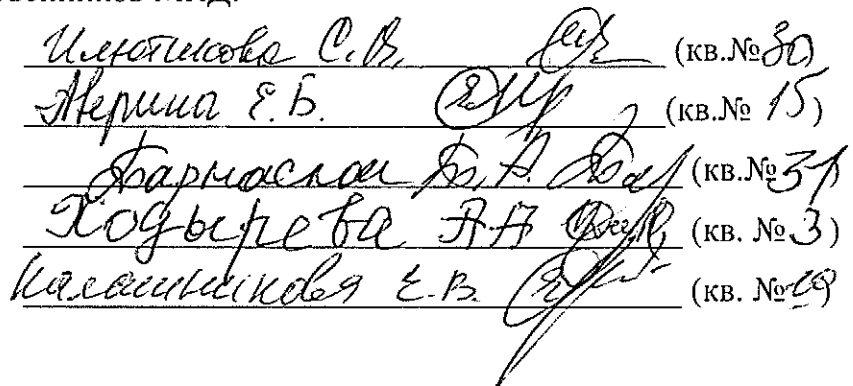 Илютикова С.В. (кв.№ 30)
Аверина Е.Б. (кв.№ 15)
Б.А. (кв.№ 31)
Ходырева АА (кв. № 3)
Калашникова Е.В. (кв. № 19)